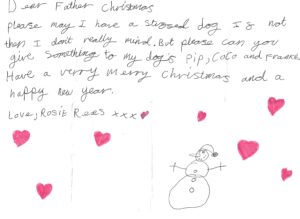 Dear Father Christmas
Please may I have a stuffed dog If not
then I don't really mind. But please can you
give something to my dogs Pip, Coco and Frankie
Have a verry merry Christmas and a
happy new year.
Love, Rosie Rees xxx